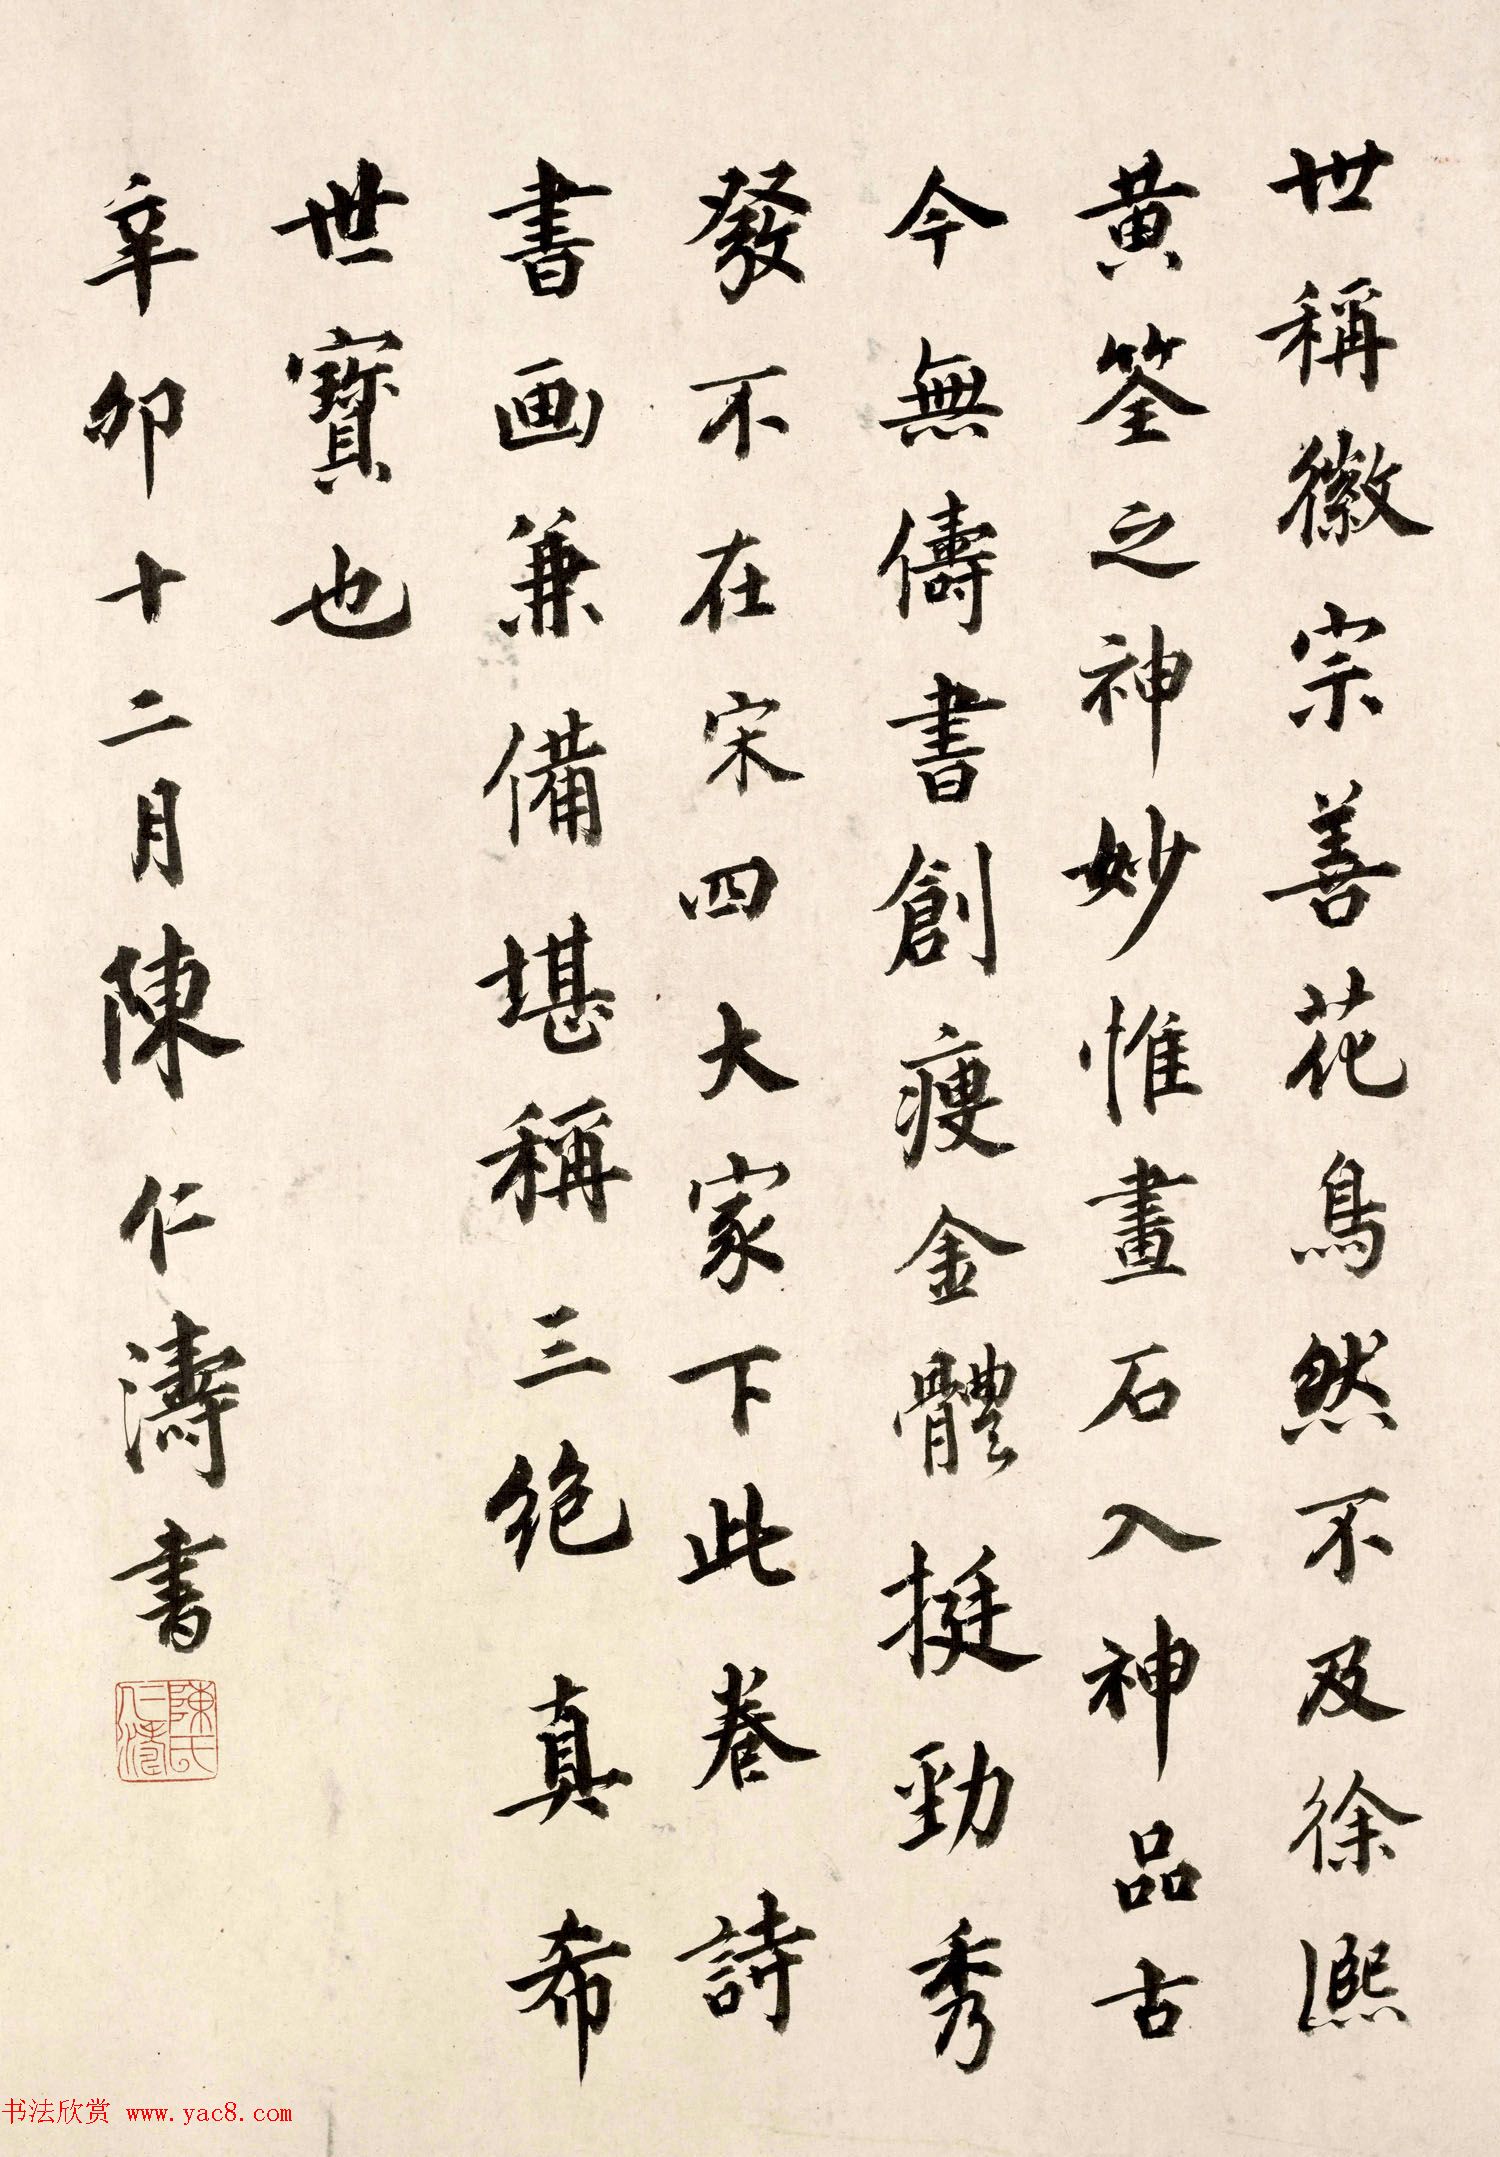 世稱徽宗善花鳥然不及徐熙
黄筌之神妙惟畫石入神品古
今無儔書創瘦金體挺勁秀
發不在宋四大家下此卷詩
書画兼備堪稱三絶真希
世寶也
辛卯十二月陳仁濤書
陳氏
仁濤
书法欣赏 www.yac8.com